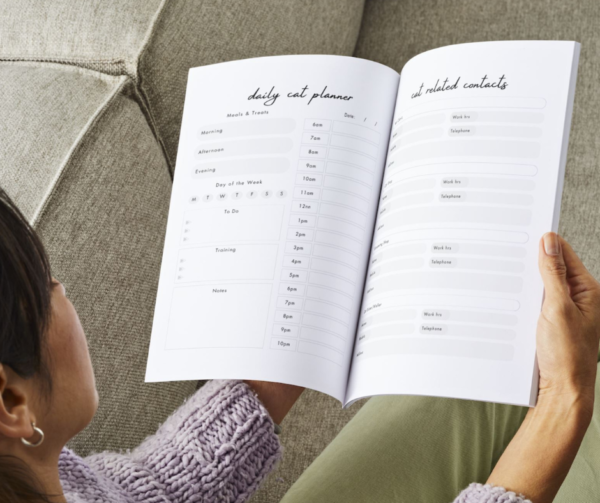 daily cat planner
Meals & Treats
Morning
Afternoon
Evening
Day of the Week
M T W T F S S
To Do
Training
Notes
Date / /
6am
7am
8am
9am
10am
11am
12pm
1pm
2pm
3pm
4pm
5pm
6pm
7pm
8pm
9pm
10pm
cat related contacts
Work hrs
Telephone
Work hrs
Telephone
Work hrs
Telephone
Work hrs
Telephone